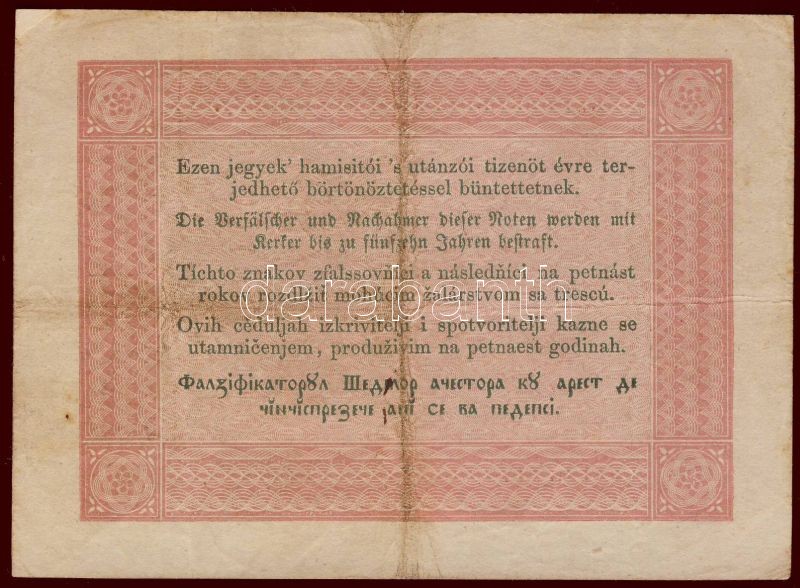 Ezen jegyek’ hamisitói ’s utánzói tizenöt évre ter-
jedhető börtönöztetéssel büntettetnek.
Die Verfälscher und Nachahmer dieser Noten werden mit
Kerker bis zu fünfzehn Jahren bestraft.
Tíchto znakov zfalssovňíci a následňíci na petnást
rokov rozdlžit žalárstvom sa trescú.
darabanth
Ovih céduljah izkrivitelji i spotvoritelji kazne se
utamničenjem, produživim na petnaest godinah.
Фалзіфікаторул ачестора кꙋ арест де
се ва педепсі.